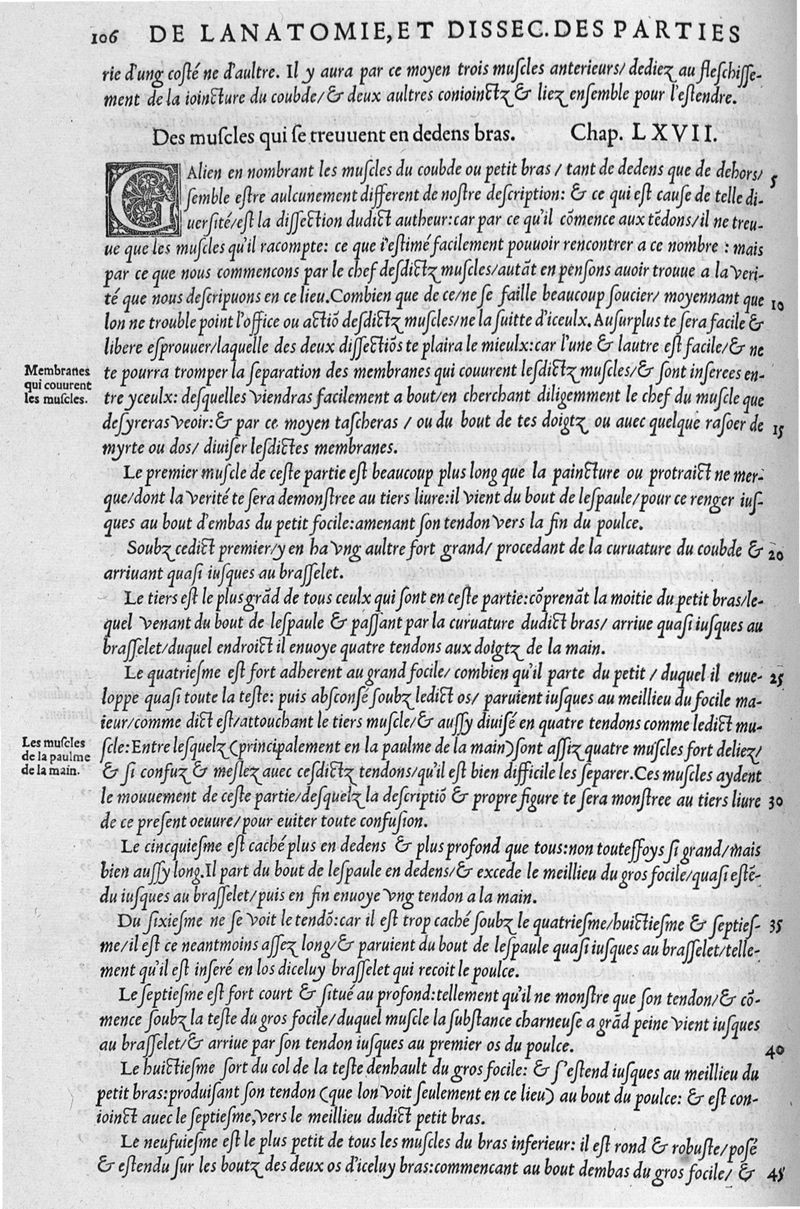 106 DE LANATOMIE, ET DISSEC. DES PARTIES
rie d'ung costé ne d'aultre. Il y aura par ce moyen trois muscles anterieurs/ dediez au fleschisse-
ment de la ioincture du coubde/ & deux aultres conioinctz & liez ensemble pour l'estendre.
Des muscles qui se treuuent en dedens bras. Chap. LXVII.
GAlien en nombrant les muscles du coubde ou petit bras / tant de dedens que de dehors/
5
semble estre aulcunement different de nostre description: & ce qui est cause de telle di-
uersité/est la dissection dudict autheur:car par ce qu'il cõmence aux tēdons/il ne treu-
ue que les muscles qu'il racompte: ce que i'estimé facilement pouuoir rencontrer a ce nombre : mais
par ce que nous commencons par le chef desdictz muscles/autāt en pensons auoir trouue a la veri-
té que nous descripuons en ce lieu.Combien que de ce/ne se faille beaucoup soucier/ moyennant que
10
lon ne trouble point l'office ou actiõ desdictz muscles/ne la suitte d'iceulx. Au surplus te sera facile &
libere esprouuer/laquelle des deux dissectiõs te plaira le mieulx:car l'une & lautre est facile/& ne
Membranes
qui couurent
les muscles.
te pourra tromper la separation des membranes qui couurent lesdictz muscles/& sont inserees en-
tre yceulx: desquelles viendras facilement a bout/en cherchant diligemment le chef du muscle que
desyreras veoir:& par ce moyen tascheras / ou du bout de tes doigtz ou auec quelque rasoer de
15
myrte ou dos/ diuiser lesdictes membranes.
Le premier muscle de ceste partie est beaucoup plus long que la paincture ou protraict ne mer-
que/dont la verité te sera demonstree au tiers liure:il vient du bout de lespaule/pour ce renger ius-
ques au bout d'embas du petit focile:amenant son tendon vers la fin du poulce.
Soubz cedict premier/y en ha vng aultre fort grand/ procedant de la curuature du coubde &
20
arriuant quasi iusques au brasselet.
Le tiers est le plus grād de tous ceulx qui sont en ceste partie:cõprenāt la moitie du petit bras/le-
quel venant du bout de lespaule & passant par la curuature dudict bras/ arriue quasi iusques au
brasselet/duquel endroict il enuoye quatre tendons aux doigtz de la main.
Le quatriesme est fort adherent au grand focile/ combien qu'il parte du petit / duquel il enue-
25
loppe quasi toute la teste: puis absconsé soubz ledict os/ paruient iusques au meillieu du focile ma-
ieur/comme dict est/attouchant le tiers muscle/& aussy diuisé en quatre tendons comme ledict mu-
Les muscles
de la paulme
de la main.
scle:Entre lesquelz (principalement en la paulme de la main) sont assiz quatre muscles fort deliez/
& si confuz & meslez auec cesdictz tendons/qu'il est bien difficile les separer.Ces muscles aydent
le mouuement de ceste partie/desquelz la descriptiõ & propre figure te sera monstree au tiers liure
30
de ce present oeuure/pour euiter toute confusion.
Le cincquiesme est caché plus en dedens & plus profond que tous:non touteffoys si grand/mais
bien aussy long.Il part du bout de lespaule en dedens/& excede le meillieu du gros focile/quasi estē-
du iusques au brasselet/puis en fin enuoye vng tendon a la main.
Du sixiesme ne se voit le tendõ:car il est trop caché soubz le quatriesme/huictiesme & septies-
35
me/il est ce neantmoins assez long/& paruient du bout de lespaule quasi iusques au brasselet/telle-
ment qu'il est inseré en los diceluy brasselet qui recoit le poulce.
Le septiesme est fort court & situé au profond:tellement qu'il ne monstre que son tendon/& cõ-
mence soubz la teste du gros focile/duquel muscle la substance charneuse a grād peine vient iusques
au brasselet/& arriue par son tendon iusques au premier os du poulce.
40
Le huictiesme sort du col de la teste denhault du gros focile: & s'estend iusques au meillieu du
petit bras:produisant son tendon (que lon voit seulement en ce lieu) au bout du poulce: & est con-
ioinct auec le septiesme,vers le meillieu dudict petit bras.
Le neufuiesme est le plus petit de tous les muscles du bras inferieur: il est rond & robuste/posé
& estendu sur les boutz des deux os d'iceluy bras:commencant au bout dembas du gros focile/ &
45